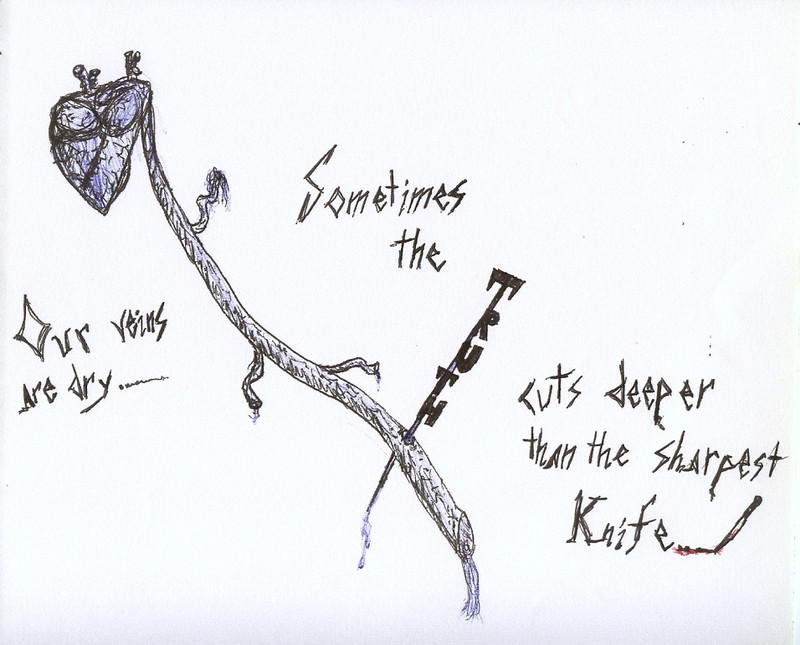 Sometimes
the
TRUTH
cuts deeper
than the sharpest
Knife...
Our veins
are dry......